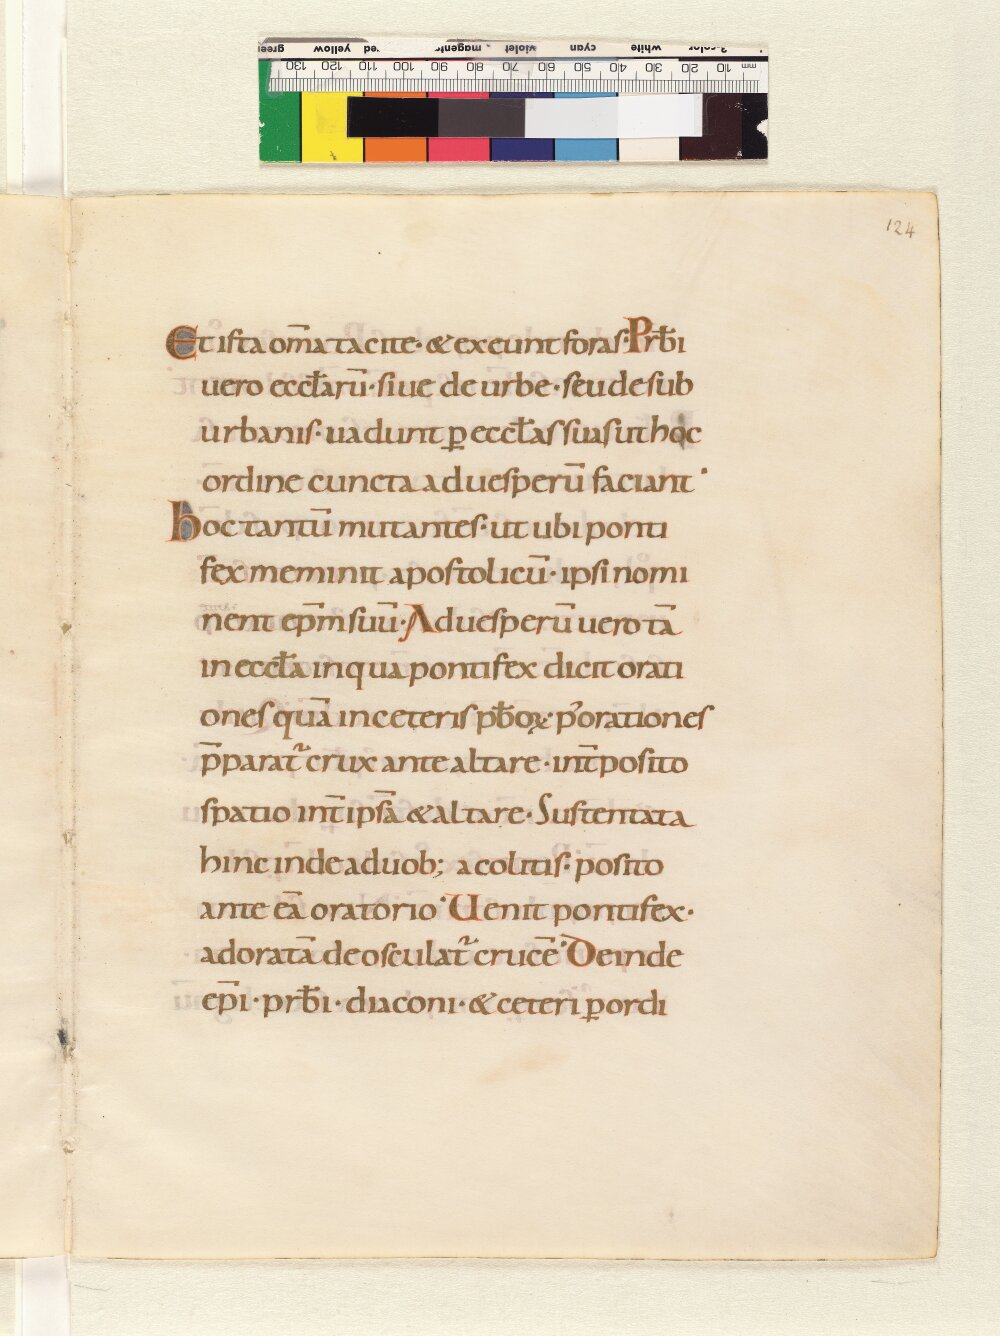 124
Et ista om̄a tacite · & exeunt foras · Prb̄i
uero eccl̄aru᷑ · siue de urbe · seu de sub
urbanis · uadunt ꝑ eccl̄as suas ut hoc
ordine cuncta ad uesperū faciant ·
hoc tantū mutantes · ut ubi ponti
fex meminit apostolicū · ipsi nomi
nent ep̄m suū · Ad uesperū uero tā
in eccl̄a in qua pontifex dicit orati
ones quā in ceteris pb̄oꝝ · p᷒ orationes
p̄parat᷑ crux ante altare · int̄posito
spatio int̄ ipsā & altare · Sustentata
hinc inde a duob; acolitis · posito
ante eā oratorio · Uenit pontifex ·
adoratā deosculat᷑ crucē · Deinde
ep̄i · prb̄i · diaconi · & ceteri ꝑ ordi